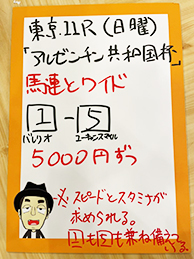 東京11R(日曜)
「アルゼンチン共和国杯」
馬連とワイド
1-5
バレリオ ユーキャンスマイル
5000円ずつ
※スピードとスタミナが
求められる。
1も5も兼ね備え